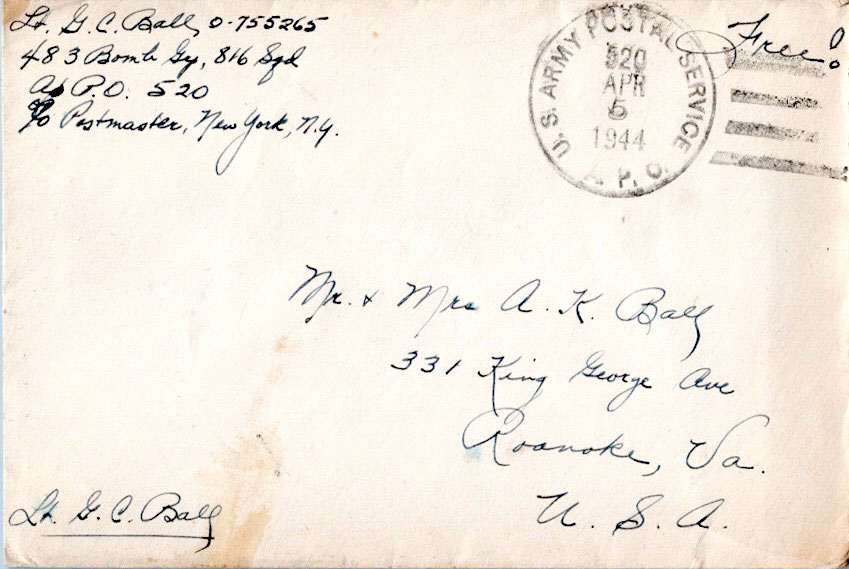 Lt. G. C. Ball, O-755265
483 Bomb Gp, 816 Sqd
A.P.O. 520
c/o Postmaster, New York, N.Y.
U.S. ARMY POSTAL SERVICE
520
APR
5
1944
A. P. O.
Free!
Mr. & Mrs A. K. Ball
331 King George Ave
Roanoke, Va.
U. S. A.
Lt. G. C. Ball